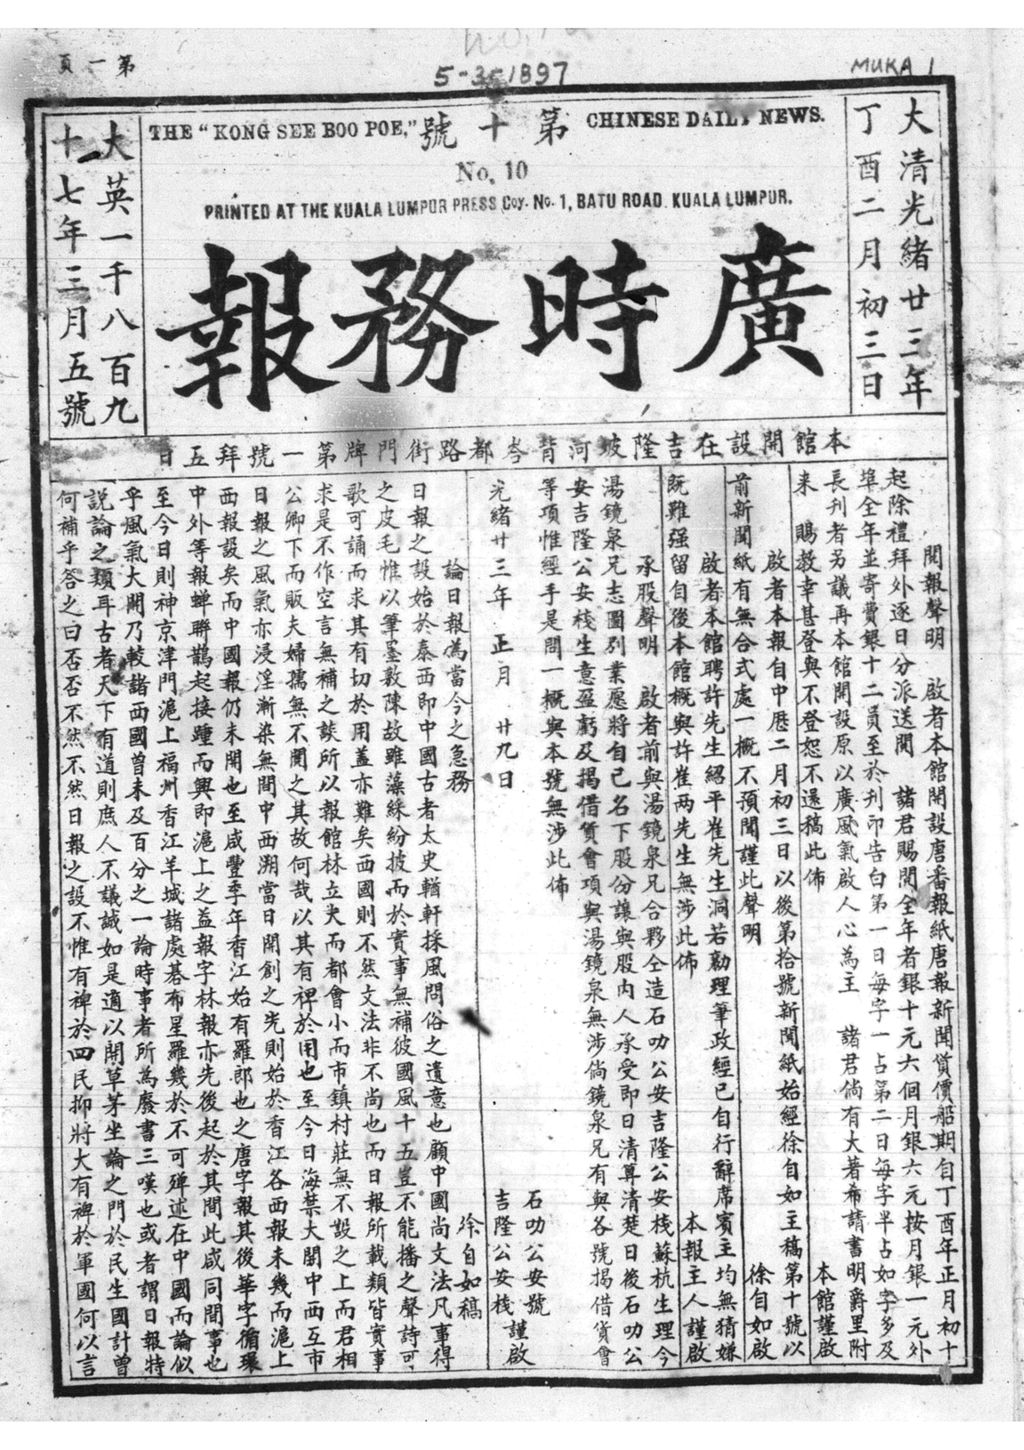 5-3-1897
MUKA 1
第一頁
大清光緒廿三年
丁酉二月初三日
THE "KONG SEE BOO POE,"
第十號
CHINESE DAILY NEWS.
No. 10
PRINTED AT THE KUALA LUMPUR PRESS Coy. No. 1, BATU ROAD. KUALA LUMPUR.
廣時務報
大英一千八百九
十七年三月五號
本館開設在吉隆坡河背峇都路街門牌第一號拜五日
閱報聲明 啟者本館開設唐番報紙唐報新聞貨價船期自丁酉年正月初十
起除禮拜外逐日分派送閱 諸君賜閱全年者銀十元六個月銀六元按月銀一元外
埠全年並寄費銀十二員至於刊印告白第一日每字一占第二日每字半占如字多及
長刊者另議再本館開設原以廣風氣啟人心為主 諸君倘有大著布請書明爵里附
來 賜教幸甚登與不登恕不還稿此佈 本館謹啟
啟者本報自中歷二月初三日以後第拾號新聞紙始經徐自如主稿第十號以
前新聞紙有無合式處一概不預聞謹此聲明 徐自如啟
啟者本館聘許先生紹平崔先生洞若勷理筆政經已自行辭席賓主均無猜嫌
既難强留自後本館概與許崔两先生無涉此佈 本報主人謹啟
承股聲明 啟者前與湯鏡泉兄合夥仝造石叻公安吉隆公安棧蘇杭生理今
湯鏡泉兄志圖別業愿將自己名下股份讓與股内人承受即日清算清楚日後石叻公
安吉隆公安棧生意盈虧及揭借貨會項與湯鏡泉無涉倘鏡泉兄有與各號揭借貨會
等項惟經手是問一概與本號無涉此佈
石叻公安號
吉隆公安棧 謹啟
光緒廿三年 正月 廿九日
論日報為當今之急務 徐自如稿
日報之設始於泰西即中國古者太史輶軒採風問俗之遺意也顧中國尚文法凡事得
之皮毛惟以筆墨敷陳故雖藻綵紛披而於實事無補彼國風十五豈不能播之聲詩可
歌可誦而求其有切於用蓋亦難矣西國則不然文法非不尚也而日報所載類皆實事
求是不作空言無補之談所以報館林立大而都會小而市鎮村莊無不設之上而君相
公卿下而販夫婦孺無不閱之其故何哉以其有裨於用也至今日海禁大開中西互市
日報之風氣亦浸淫漸染無間中西溯當日開創之先則始於香江各西報未幾而滬上
西報設矣而中國報仍未開也至咸豐季年香江始有羅郎也之唐字報其後華字循環
中外等報蟬聯鵲起接踵而興即滬上之益報字林報亦先後起於其間此咸同間事也
至今日則神京津門滬上福州香江羊城諸處碁布星羅幾於不可殫述在中國而論似
乎風氣大開乃較諸西國曾未及百分之一論時事者所為廢書三嘆也或者謂日報特
說論之類耳古者天下有道則庶人不議誠如是適以開草茅坐論之門於民生國計曾
何補乎答之曰否否不然不然日報之設不惟有裨於四民抑將大有裨於軍國何以言